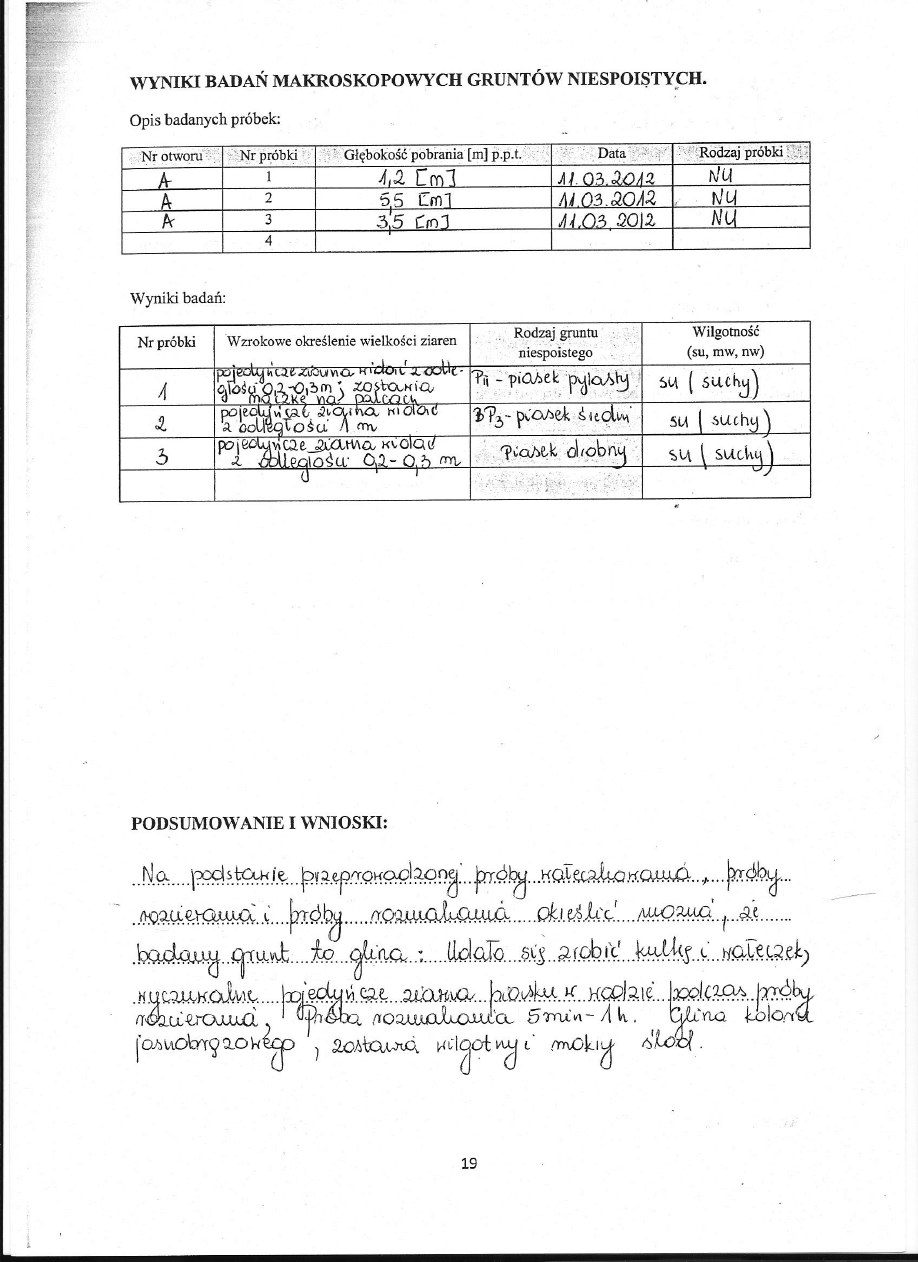 WYNIKI BADAŃ MAKROSKOPOWYCH GRUNTÓW NIESPOISTYCH.
Opis badanych próbek:
Nr otworu Nr próbki Głębokość pobrania [m] p.p.t. Data Rodzaj próbki
A 1 1,2 [m] 11.03.2012 NU
A 2 5,5 [m] 11.03.2012 NU
A 3 3,5 [m] 11.03.2012 NU
4
Wyniki badań:
Nr próbki Wzrokowe określenie wielkości ziaren Rodzaj gruntu niespoistego Wilgotność (su, mw, nw)
pojedyńcze ziarna widać z odle-
1 głości 0,2-0,3m; zostawia Pπ - piasek pylasty su (suchy)
mączkę na palcach
pojedyńcze ziarna widać
2 z odległości 1 m piasek średni su (suchy)
pojedyńcze ziarna widać
3 z odległości 0,2-0,3 m Piasek drobny su (suchy)
PODSUMOWANIE I WNIOSKI:
Na podstawie przeprowadzonej próby wałeczkowania, próby
rozcierania i próby rozmakania określić można, że
badany grunt to glina: Udało się zrobić kulkę i wałeczek,
wyczuwalne pojedyńcze ziarna piasku w wodzie podczas próby
rozcierania, Próba rozmakania 5min-1h. Glina koloru
jasnobrązowego, zostawia wilgotny i mokry ślad.
19